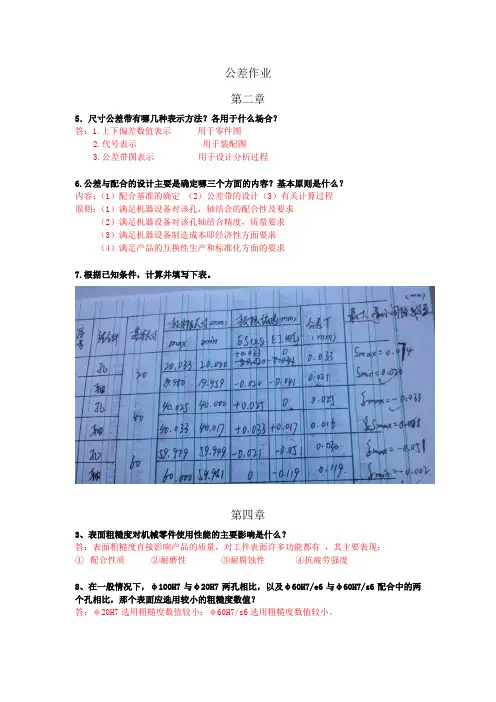 公差作业
第二章
5．尺寸公差带有哪几种表示方法？各用于什么场合？
答：1.上下偏差数值表示 用于零件图
2.代号表示 用于装配图
3.公差带图表示 用于设计分析过程
6.公差与配合的设计主要是确定哪三个方面的内容？基本原则是什么？
内容：（1）配合基准的确定 （2）公差带的设计（3）有关计算过程
原则：（1）满足机器设备对该孔，轴结合的配合性及要求
（2）满足机器设备对该孔轴结合精度，质量要求
（3）满足机器设备制造成本即经济性方面要求
（4）满足产品的互换性生产和标准化方面的要求
7.根据已知条件，计算并填写下表。
(mm)
极限尺寸(mm) 极限偏差(mm) 公差T
max min ES(es) EI(ei) (mm)
孔 20 20.033 20.000 +0.033 0 0.033 Smax=0.074
轴 19.980 19.959 -0.020 -0.041 0.021 Smin=0.020
孔 40 40.025 40.000 +0.025 0 0.025
轴 40.033 40.017 +0.033 +0.017 0.016
孔 60 59.979 59.949 -0.021 -0.051 0.030
轴 60.000 59.981 0 -0.119 0.119
第四章
3、表面粗糙度对机械零件使用性能的主要影响是什么？
答：表面粗糙度直接影响产品的质量，对工件表面许多功能都有 ，其主要表现：
① 配合性质 ②耐磨性 ③耐腐蚀性 ④抗疲劳强度
8、在一般情况下，φ100H7与φ20H7两孔相比，以及φ60H7/e5与φ60H7/s6配合中的两
个孔相比，那个表面应选用较小的粗糙度数值？
答：φ20H7选用粗糙度数值较小；φ60H7/s6选用粗糙度数值较小。